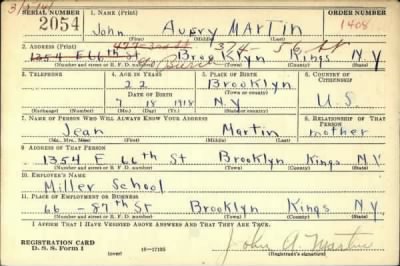 SERIAL NUMBER 1. NAME (Print) ORDER NUMBER
2054 John Avery MARTIN 1408
(First) (Middle) (Last)
2. ADDRESS (Print)
1354 E 66th St Brooklyn Kings N.Y.
(Number and street or R. F. D. number) (Town) (County) (State)
3. TELEPHONE 4. AGE IN YEARS 5. PLACE OF BIRTH 6. COUNTRY OF CITIZENSHIP
22 Brooklyn
DATE OF BIRTH (Town or county)
7 18 1918 N.Y U.S.
(Exchange) (Number) (Mo.) (Day) (Yr.) (State or country)
7. NAME OF PERSON WHO WILL ALWAYS KNOW YOUR ADDRESS 8. RELATIONSHIP OF THAT PERSON
Jean Martin mother
(Mr., Mrs., Miss) (First) (Middle) (Last)
9. ADDRESS OF THAT PERSON
1354 E 66th St Brooklyn Kings N.Y.
(Number and street or R. F. D. number) (Town) (County) (State)
10. EMPLOYER'S NAME
Miller School
11. PLACE OF EMPLOYMENT OR BUSINESS
66 - 87th St Brooklyn Kings N.Y.
(Number and street or R. F. D. number) (Town) (County) (State)
I AFFIRM THAT I HAVE VERIFIED ABOVE ANSWERS AND THAT THEY ARE TRUE.
REGISTRATION CARD
D. S. S. Form 1 16-17105 John A. Martin
(over) (Registrant's signature)